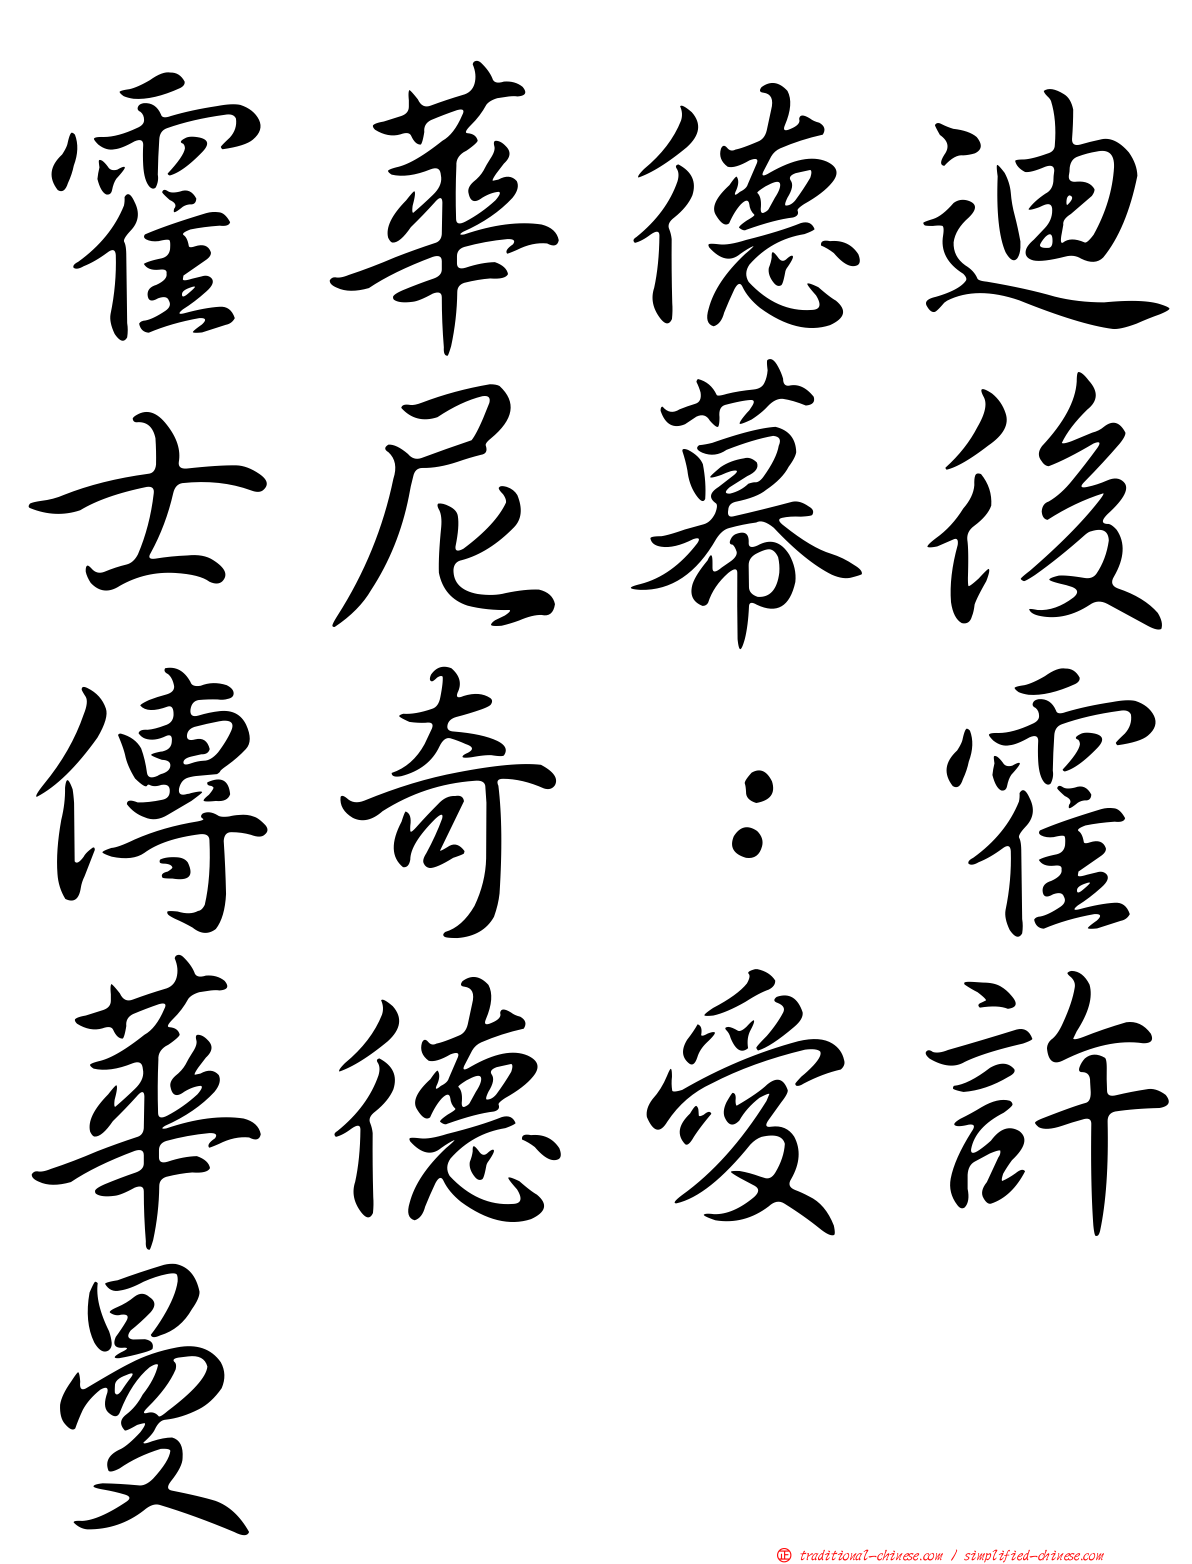 霍華德迪
士尼幕後
傳奇：霍
華德愛許
曼
正 traditional-chinese.com / simplified-chinese.com